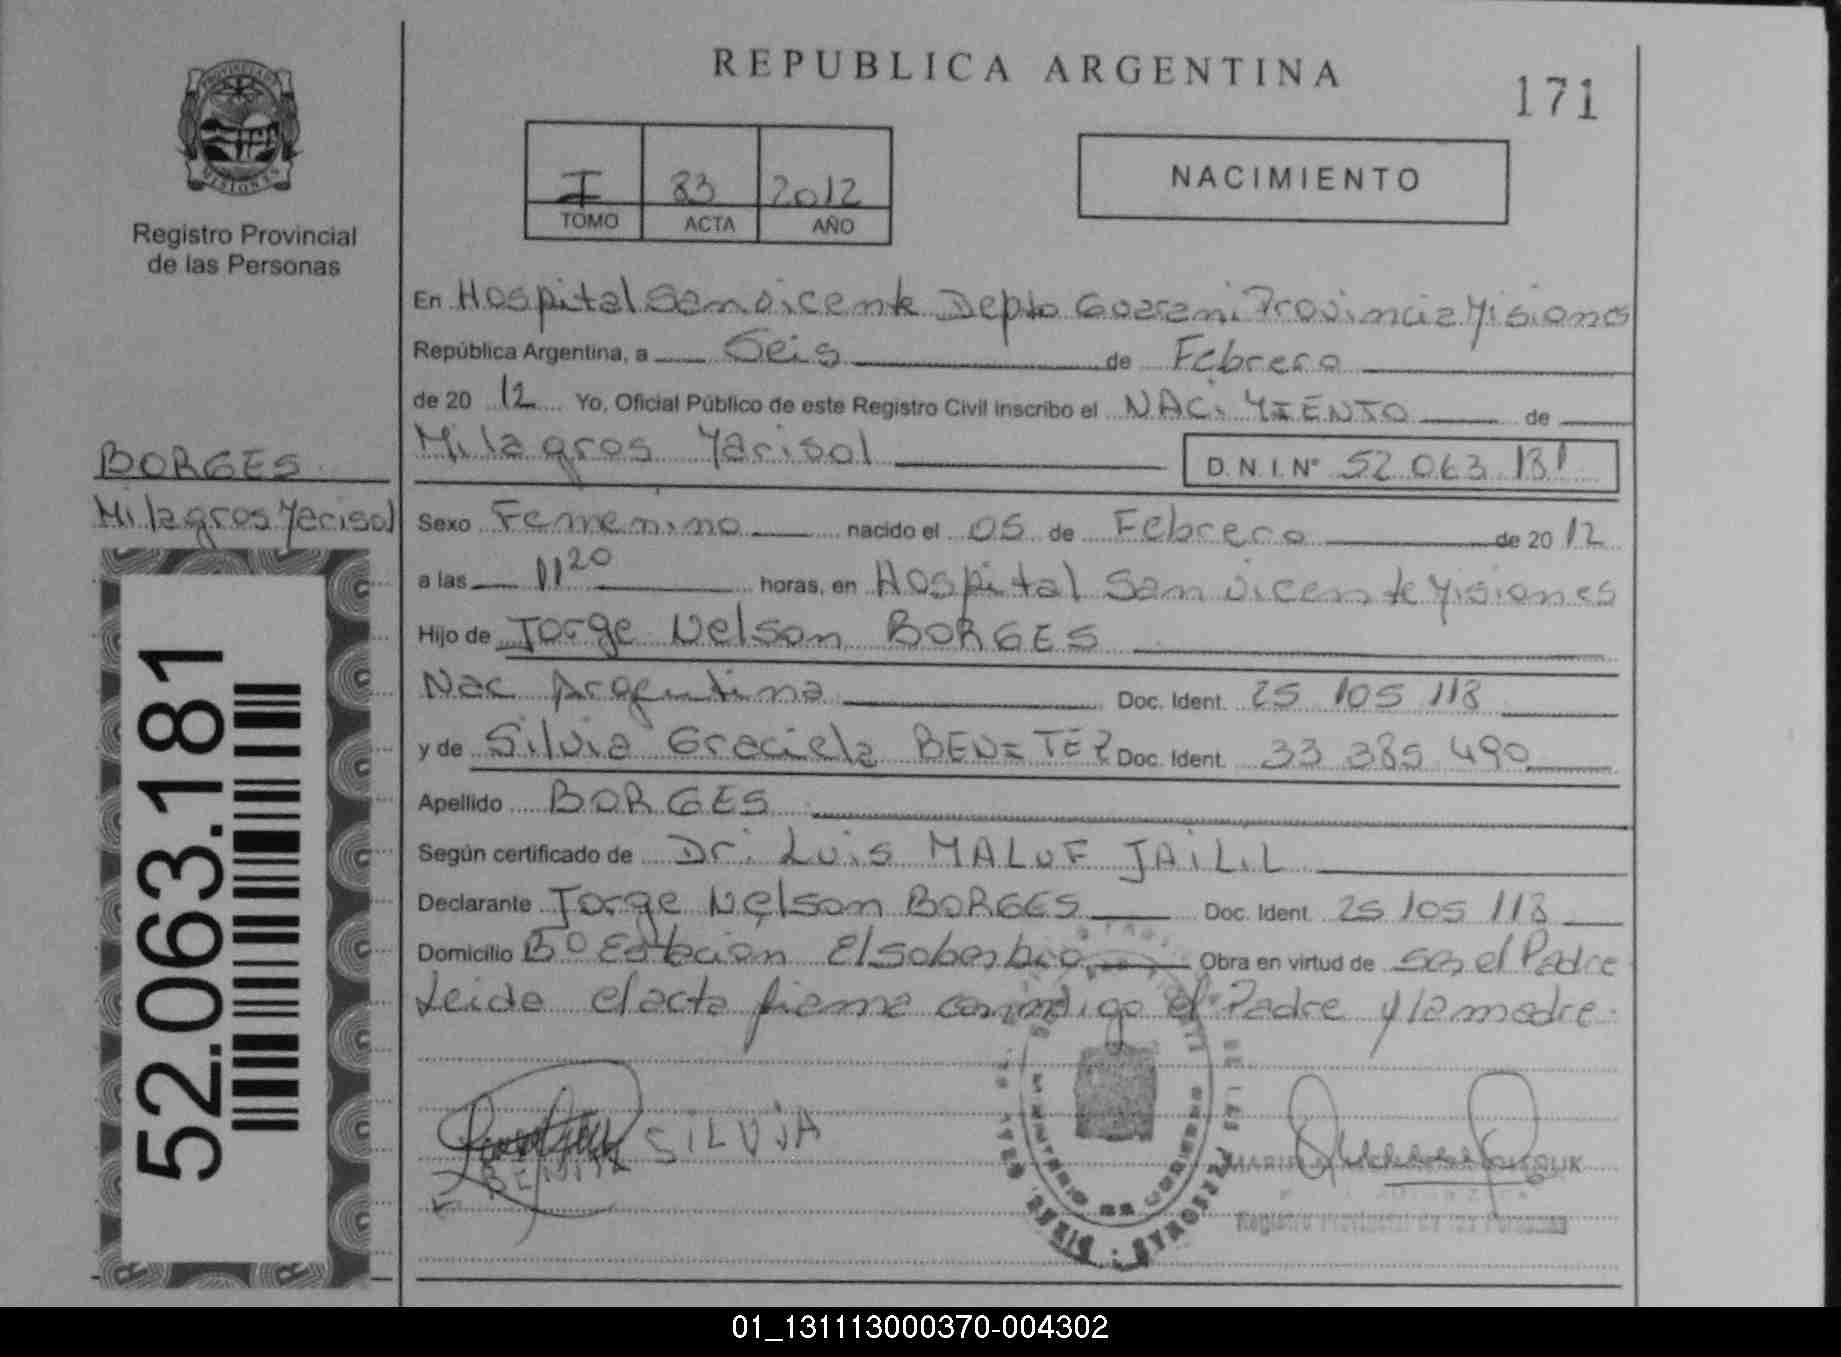 REPUBLICA ARGENTINA
171
PROVINCIA DE MISIONES
Registro Provincial
de las Personas
I 83 2012
TOMO ACTA AÑO
NACIMIENTO
En Hospital San vicente Depto Guarani Provincia Misiones
República Argentina, a Seis de Febrero
de 20 12 Yo, Oficial Público de este Registro Civil inscribo el NACIMIENTO de
Milagros Marisol D.N.I. Nº 52.063.181
BORGES
Milagros Marisol
Sexo Femenino nacido el 05 de Febrero de 20 12
a las 11 20 horas, en Hospital San vicente Misiones
Hijo de Jorge Nelson BORGES
Nac Argentina Doc. Ident. 25 105 118
y de Silvia Graciela BENITEZ Doc. Ident. 33 385 490
Apellido BORGES
Según certificado de Dr. Luis MALUF JAILIL
Declarante Jorge Nelson BORGES Doc. Ident. 25 105 118
Domicilio Bº Estación El soberbio Obra en virtud de ser el Padre
Leida el acta firma conmigo el Padre y la madre.
52.063.181
SILVIA
BENITE
MINISTERIO DE GOBIERNO
DE LAS PERSONAS
Registro Provincial de las Personas
01_131113000370-004302